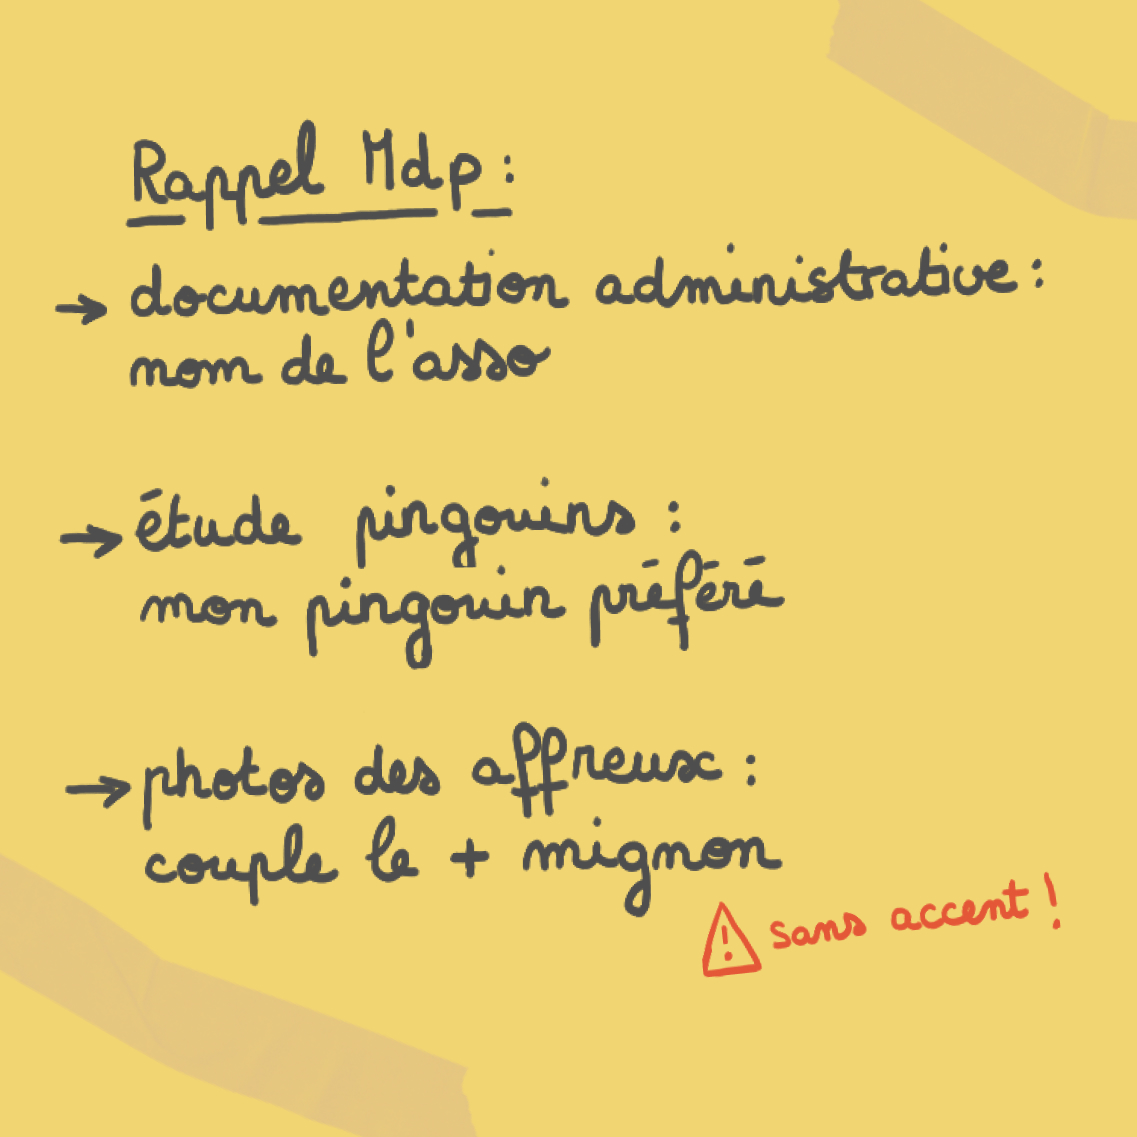 Rappel Mdp :
→ documentation administrative :
nom de l'asso
→ étude pingouins :
mon pingouin préféré
→ photos des affreux :
couple le + mignon
⚠ sans accent !